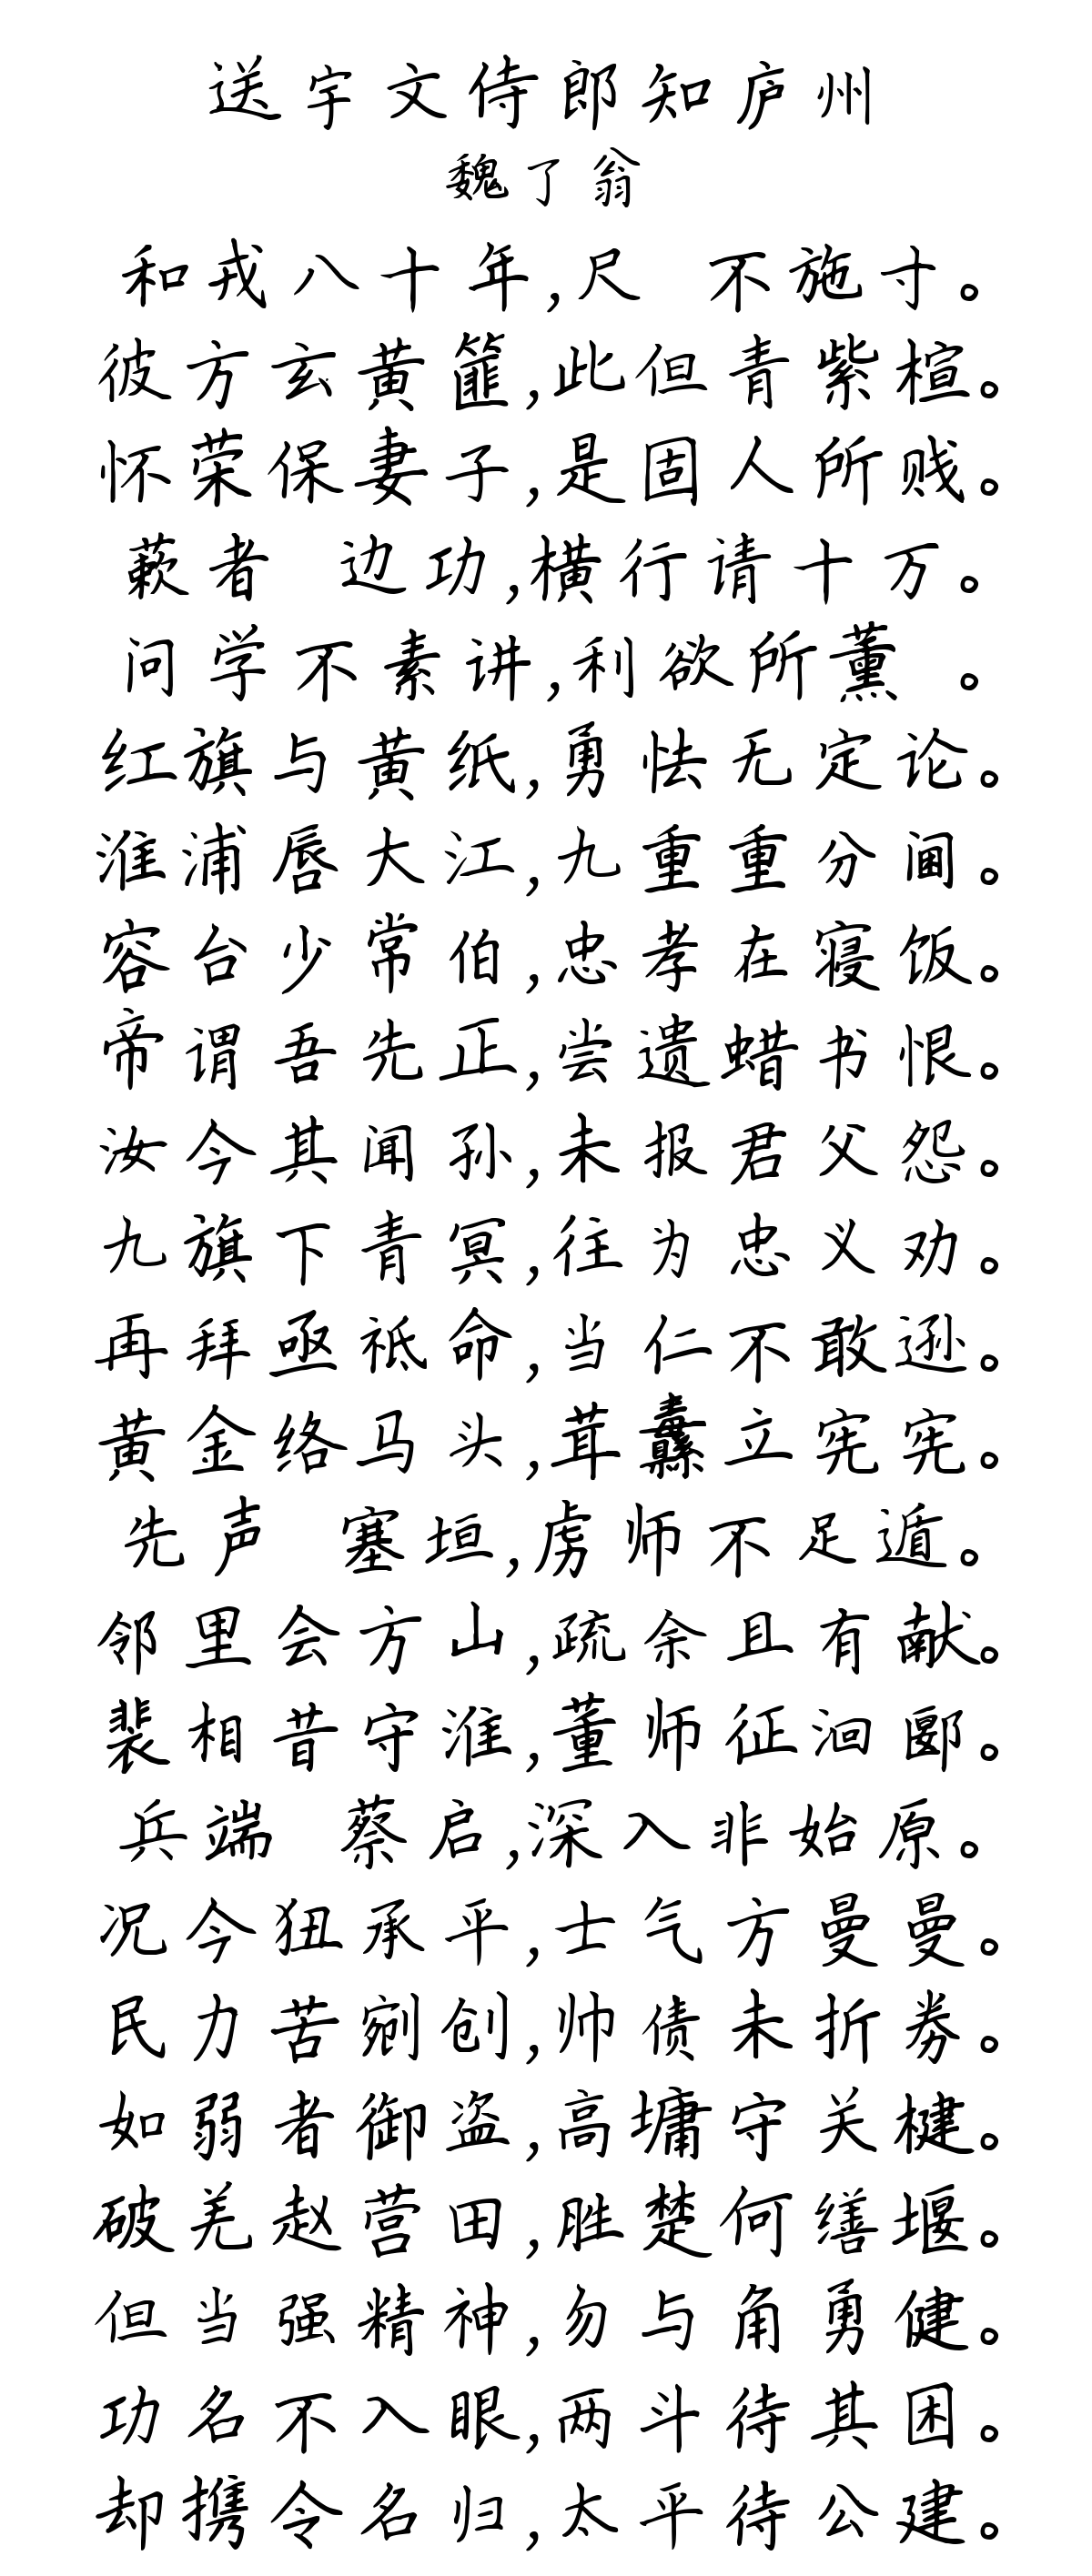 送宇文侍郎知庐州
魏了翁
和戎八十年,尺 不施寸。
彼方玄黄篚,此但青紫楦。
怀荣保妻子,是固人所贱。
蔌者 边功,横行请十万。
问学不素讲,利欲所薰 。
红旗与黄纸,勇怯无定论。
淮浦唇大江,九重重分阃。
容台少常伯,忠孝在寝饭。
帝谓吾先正,尝遗蜡书恨。
汝今其闻孙,未报君父怨。
九旗下青冥,往为忠义劝。
再拜亟祗命,当仁不敢逊。
黄金络马头,茸纛立宪宪。
先声 塞垣,虏师不足遁。
邻里会方山,疏余且有献。
裴相昔守淮,董师征洄郾。
兵端 蔡启,深入非始原。
况今狃承平,士气方曼曼。
民力苦剜创,帅债未折券。
如弱者御盗,高墉守关楗。
破羌赵营田,胜楚何缮堰。
但当强精神,勿与角勇健。
功名不入眼,两斗待其困。
却携令名归,太平待公建。